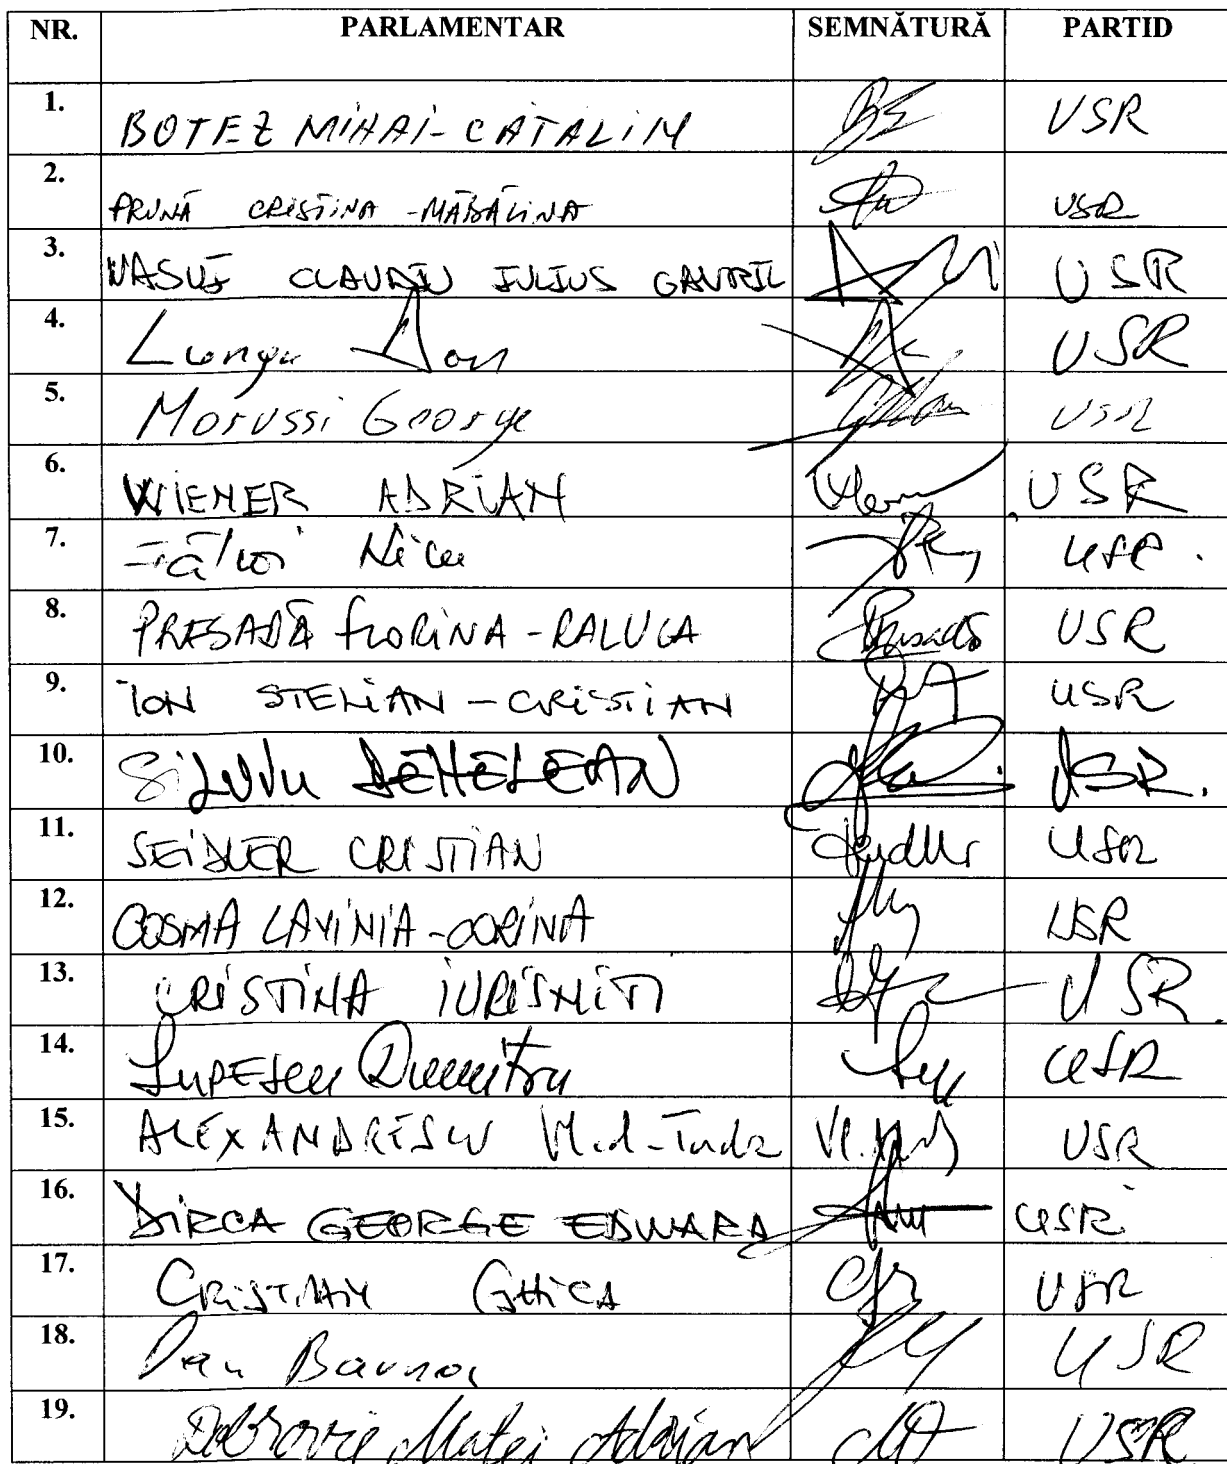 NR. PARLAMENTAR SEMNĂTURĂ PARTID
1. BOTEZ MIHAI-CATALIN USR
2. PRUNĂ CRISTINA-MĂDĂLINA USR
3. VASUI CLAUDIU IULIUS GAVRIL USR
4. Lungu Dan USR
5. Marussi George USR
6. WIENER ADRIAN USR
7. Fălcoi Nicu USR
8. PRESADĂ FLORINA-RALUCA Presadă USR
9. ION STELIAN-CRISTIAN USR
10. SiLVIU DEHELEAN USR.
11. SEIDLER CRISTIAN Seidler USR
12. COSMA LAVINIA-CORINA USR
13. CRISTINA IURIȘNIȚI USR
14. LUPESCU Dumitru USR
15. ALEXANDRESCU Vlad-Tudor USR
16. DIRCA GEORGE EDWARD USR
17. CRISTIAN GHICA USR
18. Dan Barna USR
19. Dobrovie Matei Adrian USR